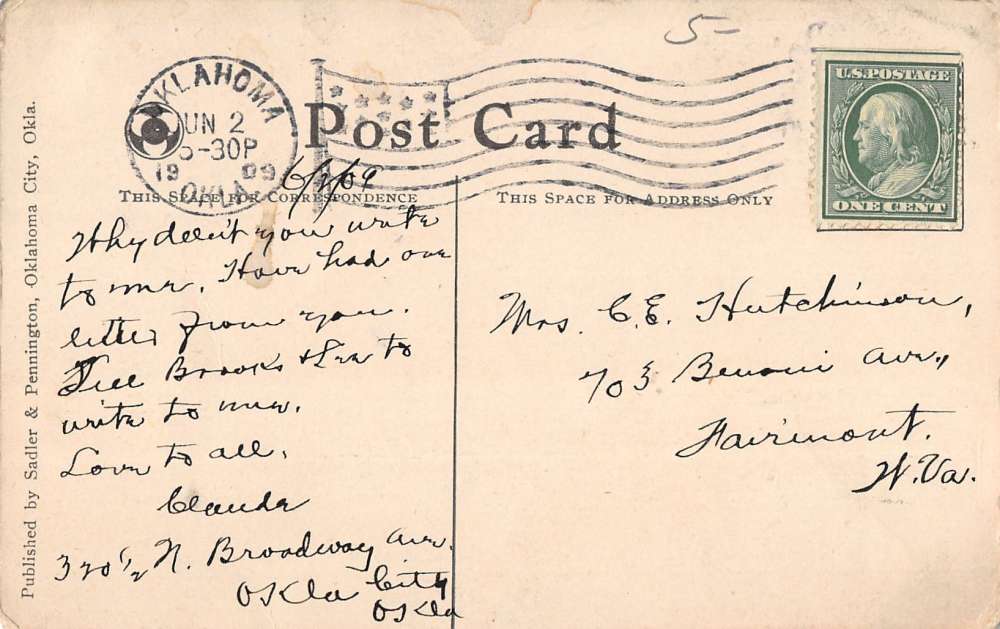 5-
OKLAHOMA
JUN 2
5-30P
1909
OKLA.
U.S. POSTAGE
ONE CENT
Post Card
6/2/09
THIS SPACE FOR CORRESPONDENCE
THIS SPACE FOR ADDRESS ONLY
Why dell't you write
to me. Have had one
letter from you.
Tell Brooks & Lee to
write to me.
Love to all.
Claude
320 1/2 N. Broadway Ave.
Okla City
Okla
Mrs. C.E. Hutchinson,
703 Benoni Ave.,
Fairmont.
W.Va.
Published by Sadler & Pennington, Oklahoma City, Okla.